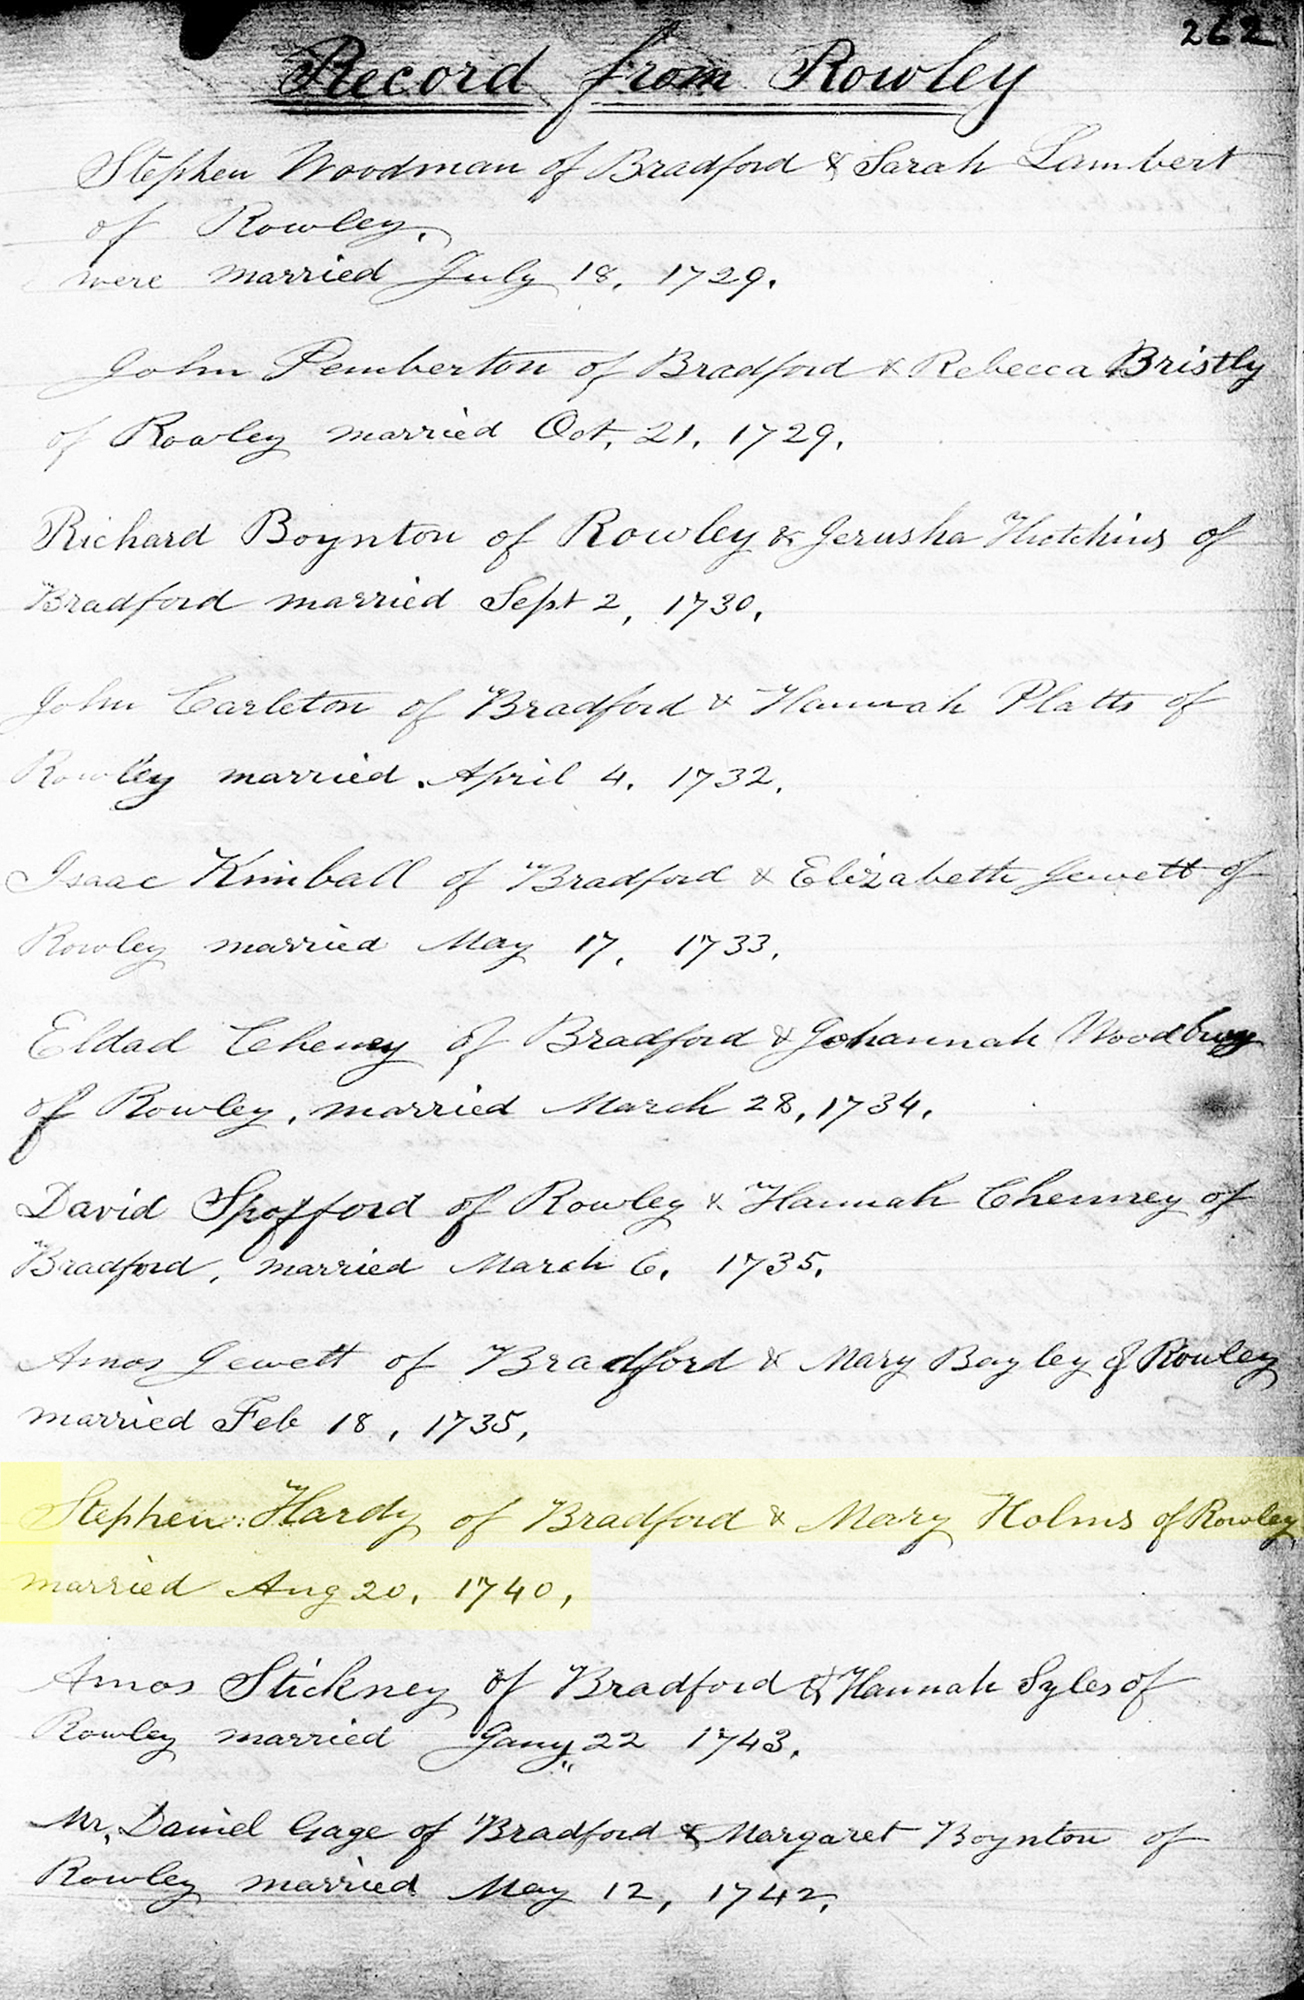 262
Record from Rowley
Stephen Woodman of Bradford & Sarah Lambert
of Rowley.
were married July 18, 1729.
John Pemberton of Bradford & Rebecca Bristly
of Rowley married Oct. 21, 1729.
Richard Boynton of Rowley & Jerusha Hutchins of
Bradford married Sept 2, 1730.
John Carleton of Bradford & Hannah Platts of
Rowley married April 4, 1732.
Isaac Kimball of Bradford & Elizabeth Jewett of
Rowley married May 17, 1733.
Eldad Cheney of Bradford & Johannah Woodbury
of Rowley, married March 28, 1734.
David Spofford of Rowley & Hannah Chenney of
Bradford, married March 6, 1735.
Amos Jewett of Bradford & Mary Bayley of Rowley
married Feb 18, 1735,
Stephen Hardy of Bradford & Mary Holms of Rowley,
married Aug 20, 1740,
Amos Stickney of Bradford & Hannah Syles of
Rowley married Jany 22 1743.
Mr. Daniel Gage of Bradford & Margaret Boynton of
Rowley married May 12, 1742,